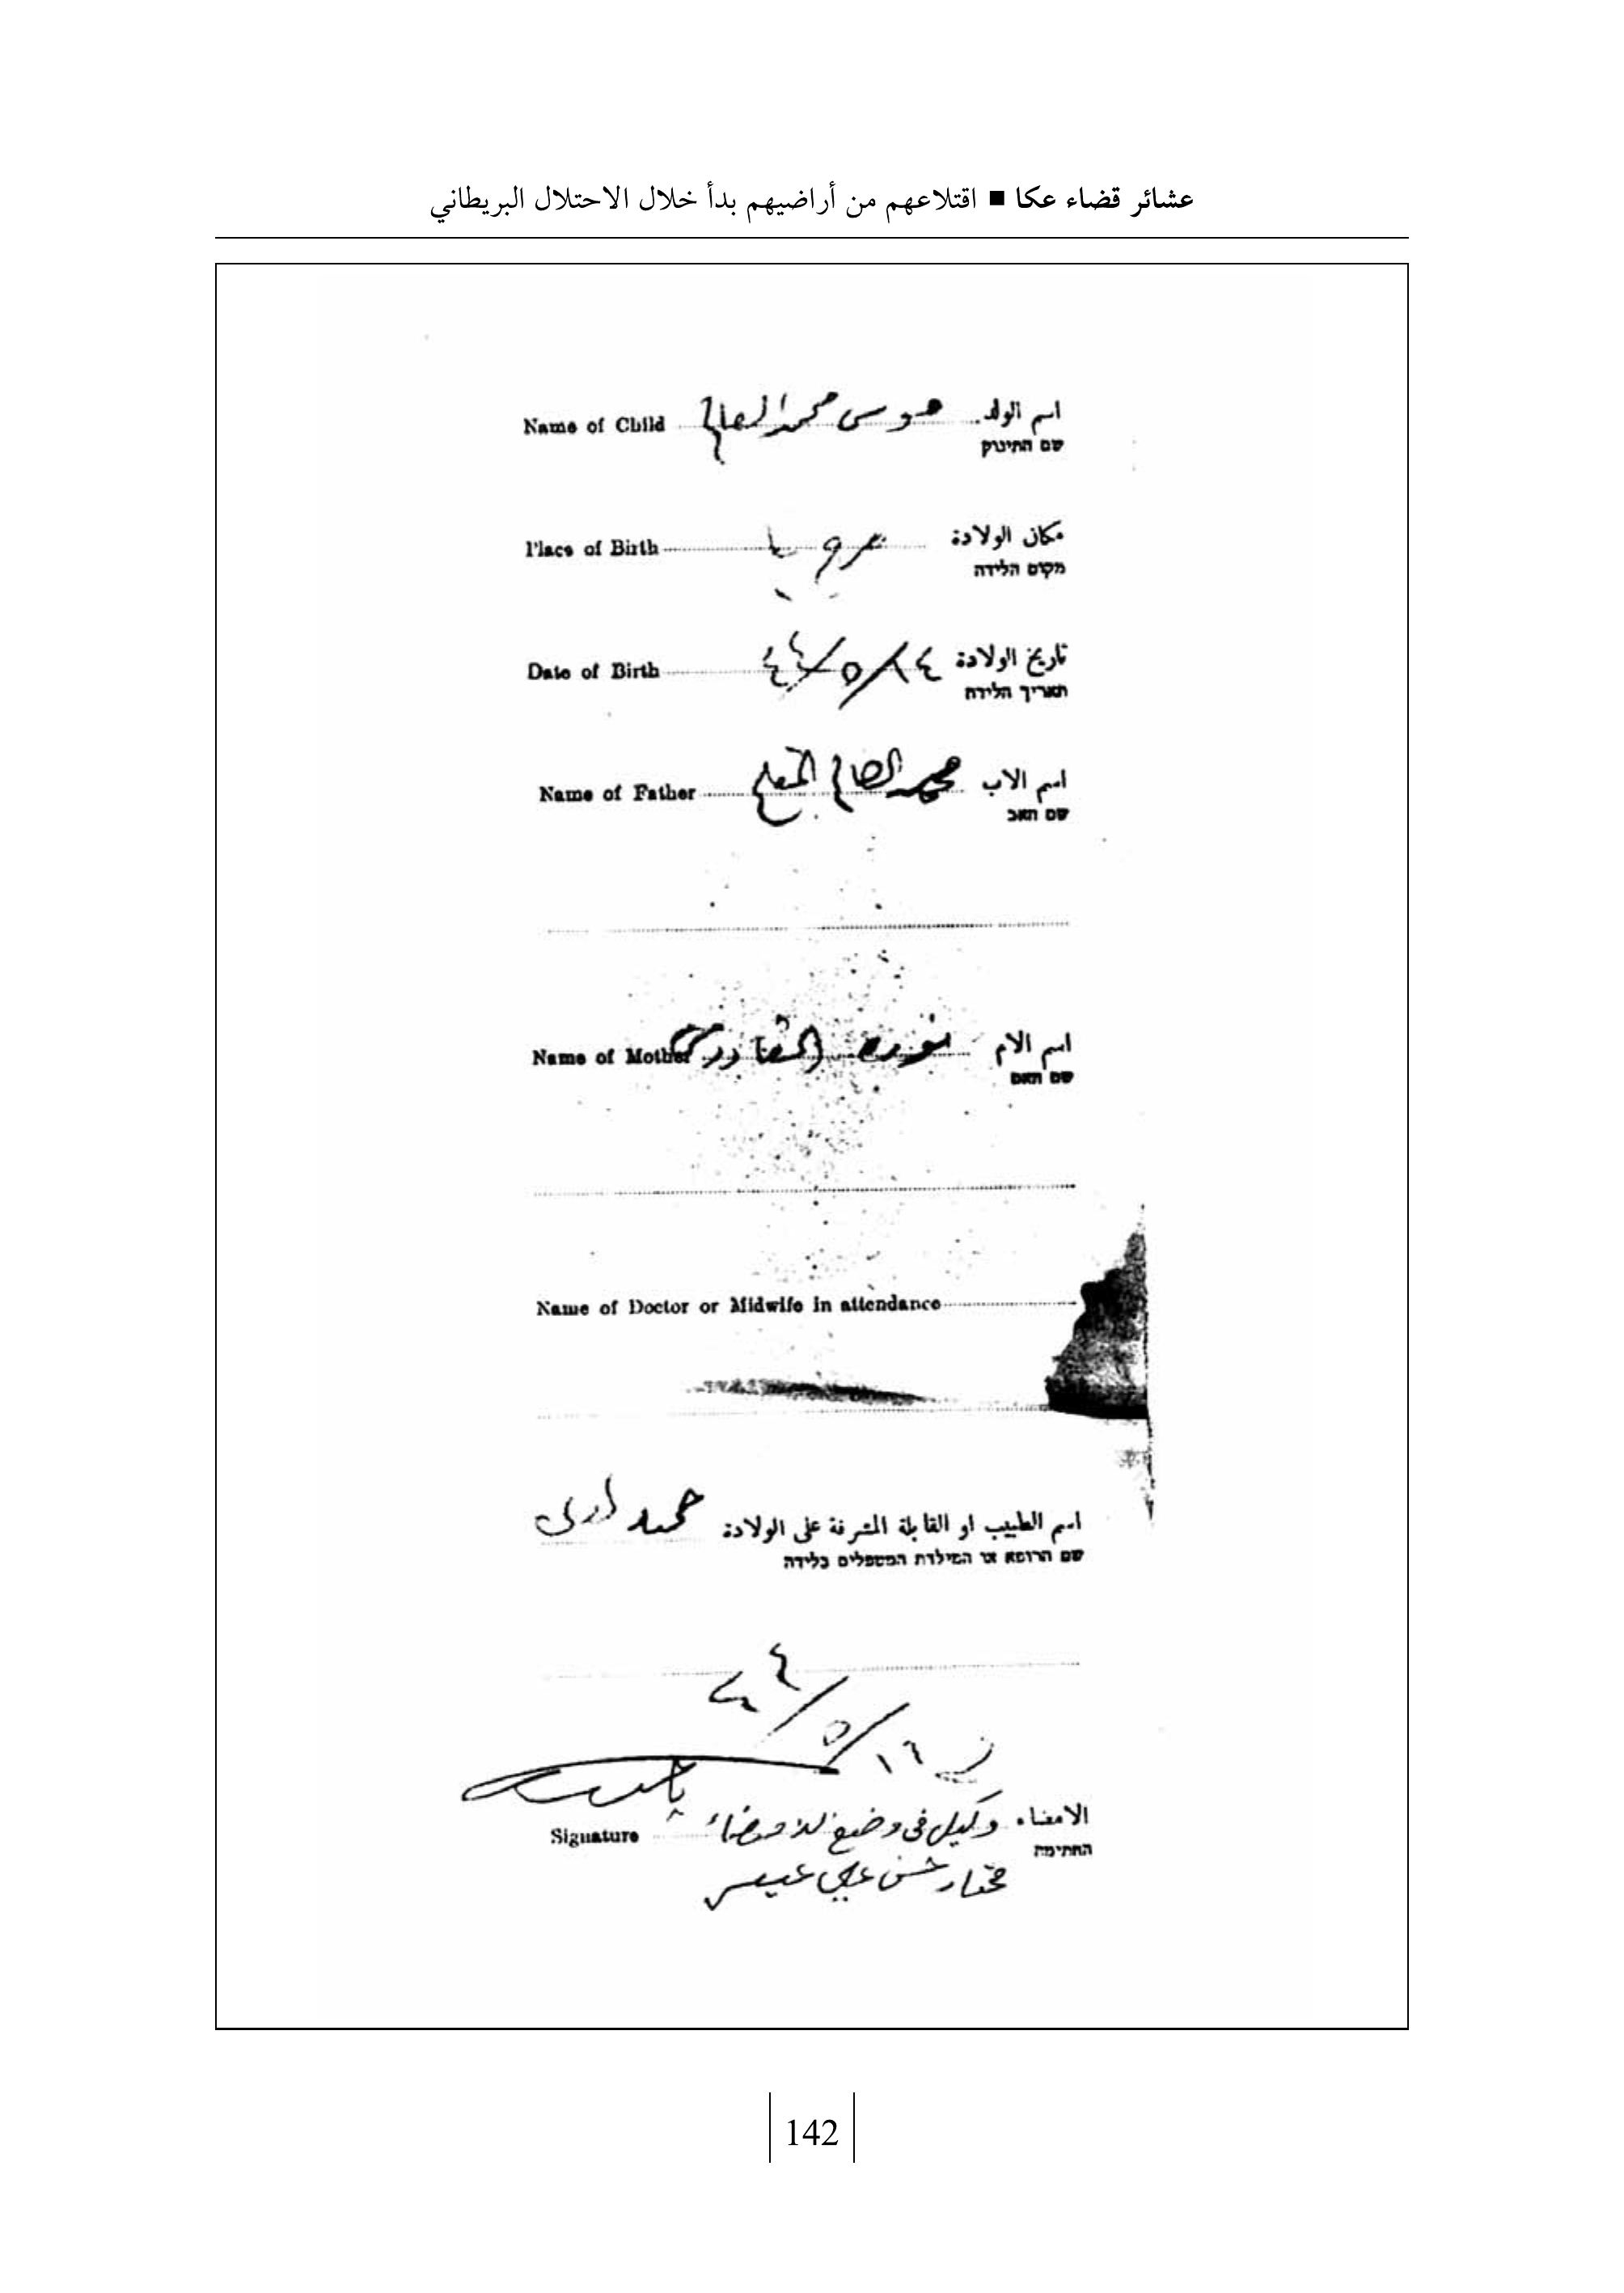 عشائر قضاء عكا ■ اقتلاعهم من أراضيهم بدأ خلال الاحتلال البريطاني
Name of Child موسى محمد الصالح اسم الولد
שם התינוק
Place of Birth مكان الولادة
מקום הלידה
Date of Birth ٤٤/٥/١٤ تاريخ الولادة
תאריך הלידה
Name of Father محمد الصالح اسم الاب
שם האב
Name of Mother نوره القادري اسم الام
שם האם
Name of Doctor or Midwife in attendance
حميد اسم الطبيب او القابلة المشرفة على الولادة
שם הרופא או המילדת המטפלים בלידה
٤٤/٥/١٦
Signature وكيل في وضع الامضاء الامضاء
החתימה
مختار حسن علي
142